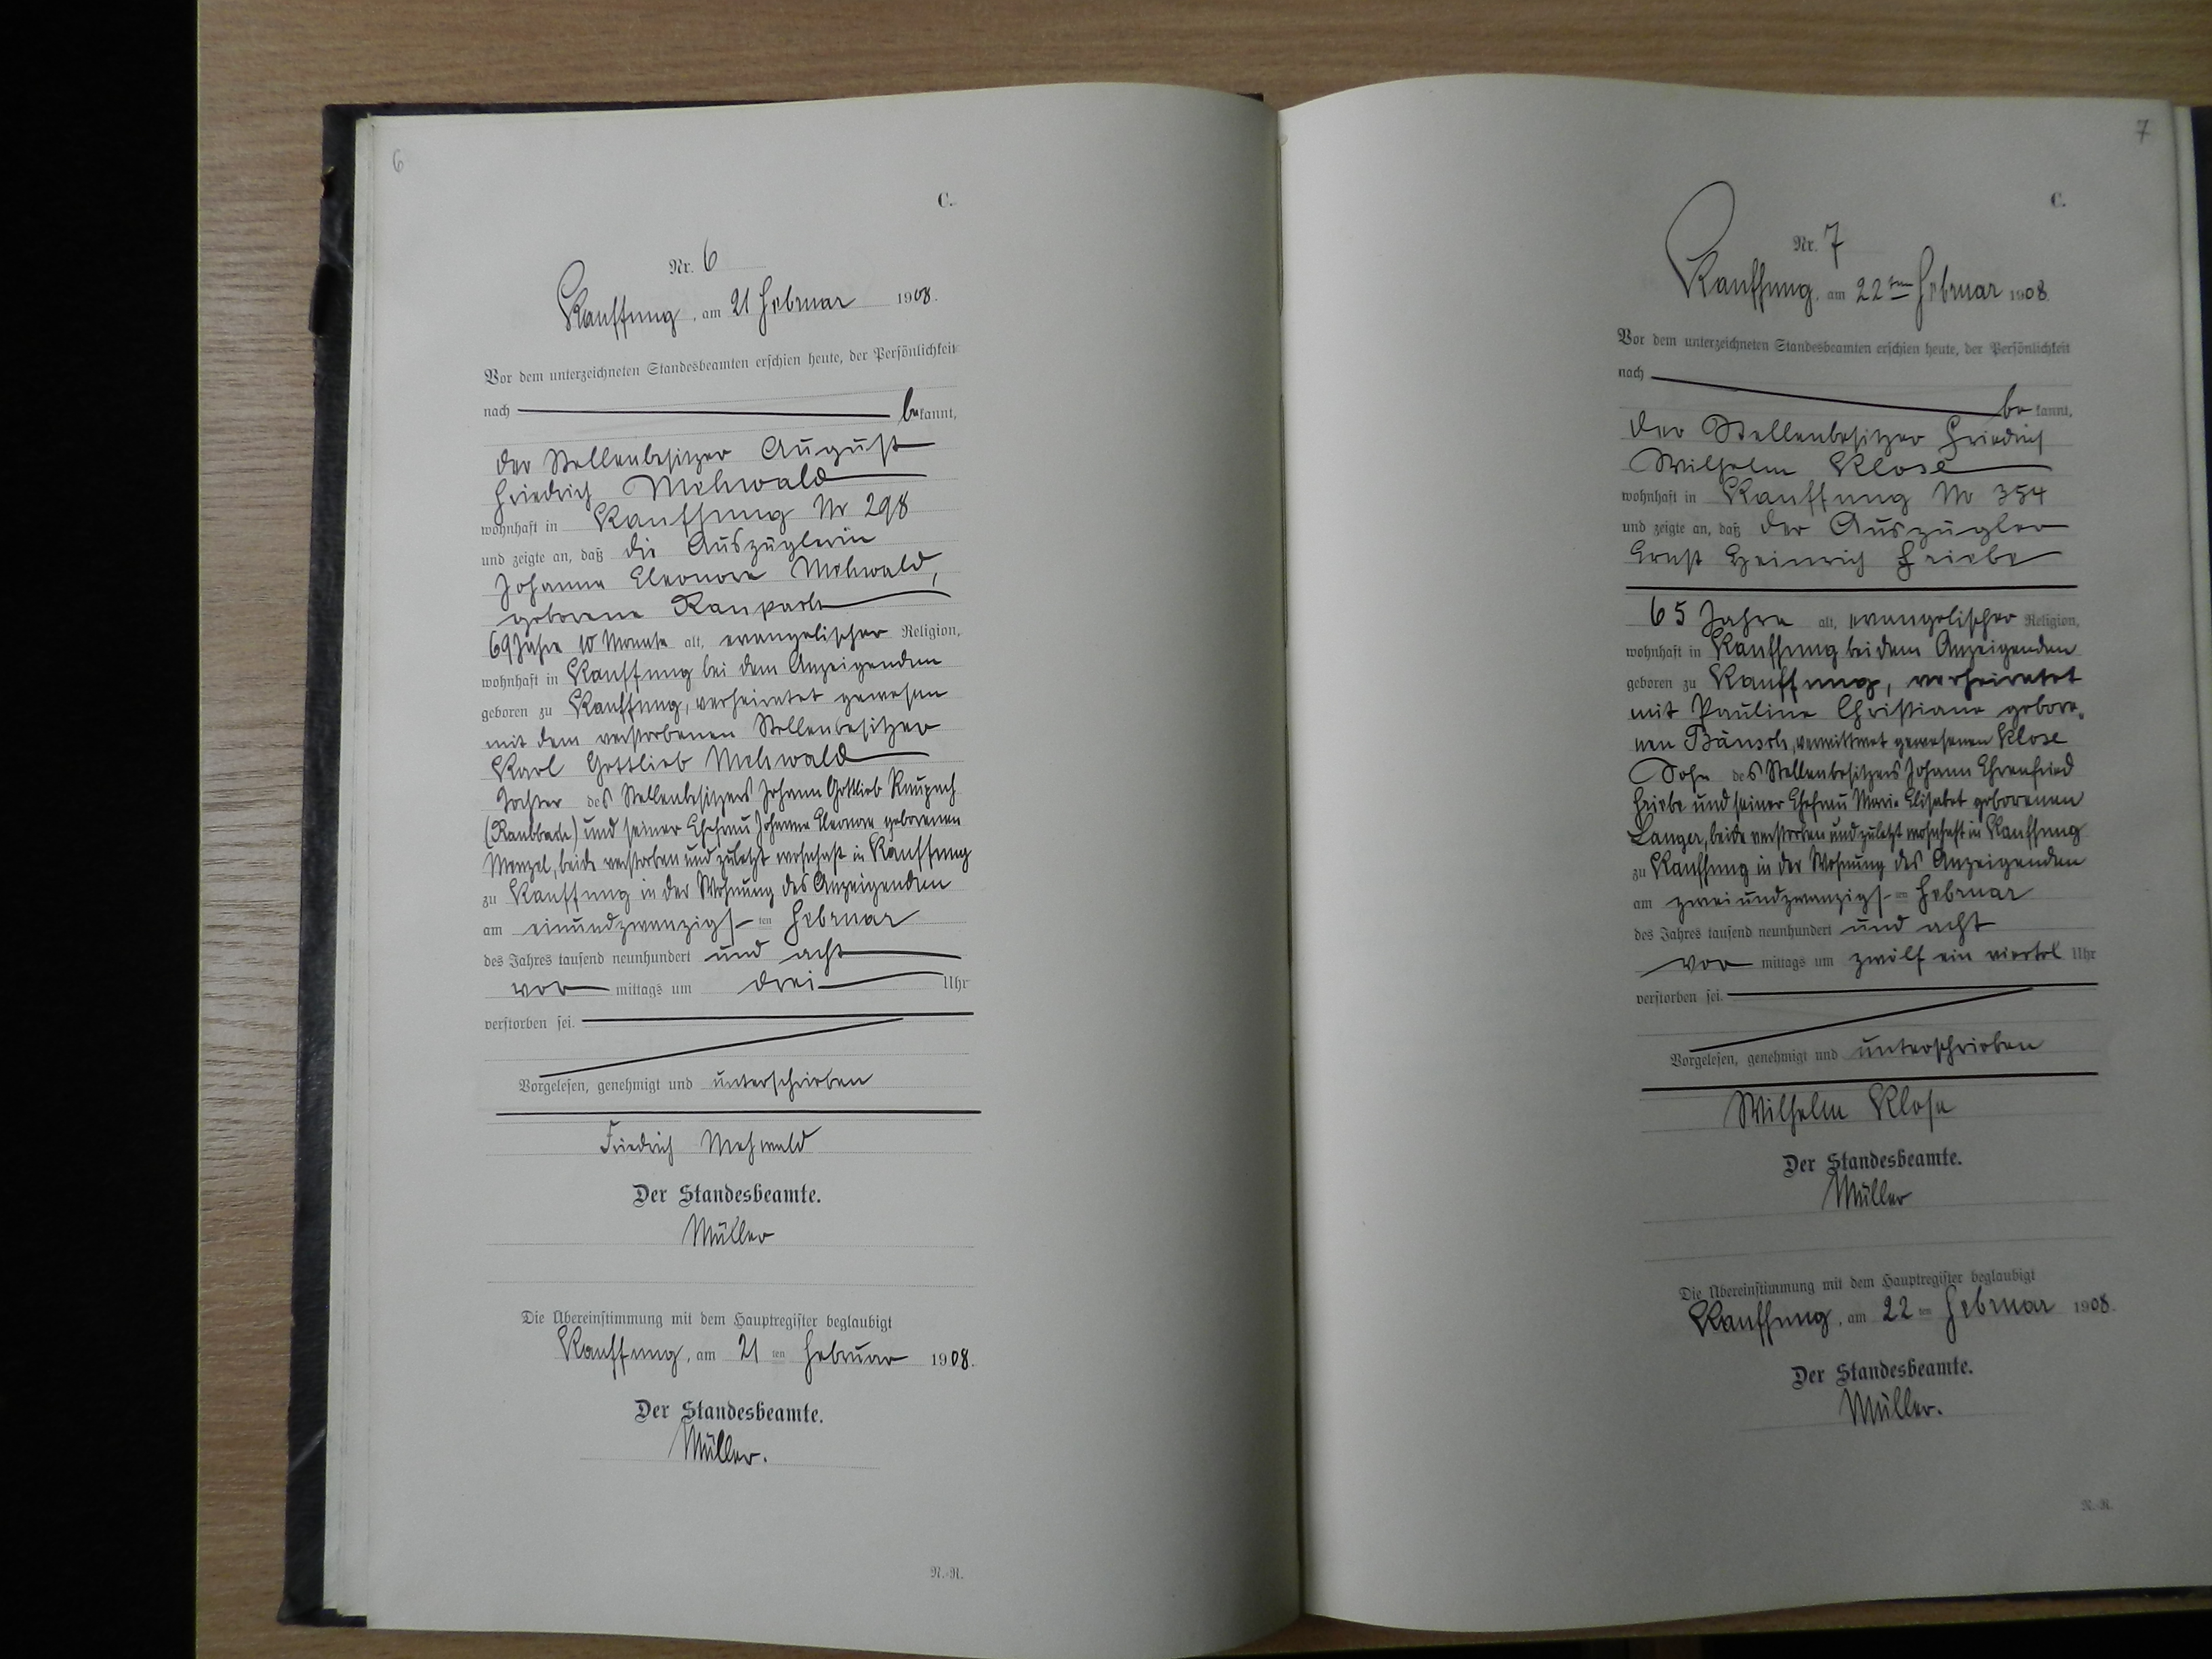 6
C.
Nr. 6
Kauffung, am 21 Februar 1908.
Vor dem unterzeichneten Standesbeamten erschien heute, der Persönlichkeit
nach bekannt,
der Stellenbesitzer August
Friedrich Mehwald
wohnhaft in Kauffung Nr 298
und zeigte an, daß die Auszüglerin
Johanne Eleonore Mehwald,
geborene Raupach
69 Jahre 10 Monate alt, evangelischer Religion,
wohnhaft in Kauffung bei dem Anzeigenden
geboren zu Kauffung, verheiratet gewesen
mit dem verstorbenen Stellenbesitzer
Karl Gottlieb Mehwald
Tochter des Stellenbesitzers Johann Gottlieb Raupach
(Raubbach) und seiner Ehefrau Johanne Eleonore geborenen
Menzel, beide verstorben und zuletzt wohnhaft in Kauffung
zu Kauffung in der Wohnung des Anzeigenden
am einundzwanzigsten Februar
des Jahres tausend neunhundert und acht
vormittags um drei Uhr
verstorben sei.
Vorgelesen, genehmigt und unterschrieben
Friedrich Mehwald
Der Standesbeamte.
Müller
Die Übereinstimmung mit dem Hauptregister beglaubigt
Kauffung, am 21ten Februar 1908.
Der Standesbeamte.
Müller.
N.-N.
7
C.
Nr. 7
Kauffung, am 22ten Februar 1908.
Vor dem unterzeichneten Standesbeamten erschien heute, der Persönlichkeit
nach bekannt,
der Stellenbesitzer Friedrich
Wilhelm Klose
wohnhaft in Kauffung Nr 354
und zeigte an, daß der Auszügler
Ernst Heinrich Friebe
65 Jahre alt, evangelischer Religion,
wohnhaft in Kauffung bei dem Anzeigenden
geboren zu Kauffung, verheiratet
mit Pauline Christiane gebore-
nen Bänsch, verwittwet gewesenen Klose
Sohn des Stellenbesitzers Johann Ehrenfried
Friebe und seiner Ehefrau Marie Elisabet geborenen
Langer, beide verstorben und zuletzt wohnhaft in Kauffung
zu Kauffung in der Wohnung des Anzeigenden
am zweiundzwanzigsten Februar
des Jahres tausend neunhundert und acht
vormittags um zwölf ein viertel Uhr
verstorben sei.
Vorgelesen, genehmigt und unterschrieben
Wilhelm Klose
Der Standesbeamte.
Müller
Die Übereinstimmung mit dem Hauptregister beglaubigt
Kauffung, am 22ten Februar 1908.
Der Standesbeamte.
Müller.
N.-N.